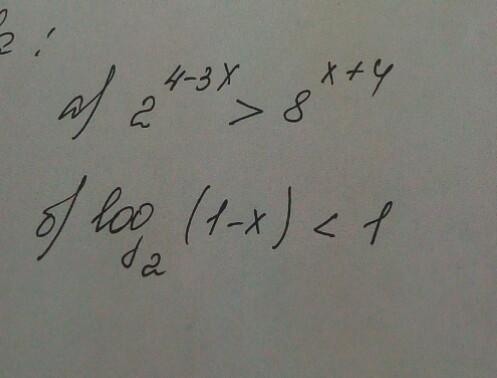 а) 2^{4-3x} > 8^{x+4}
б) log_2 (1-x) < 1